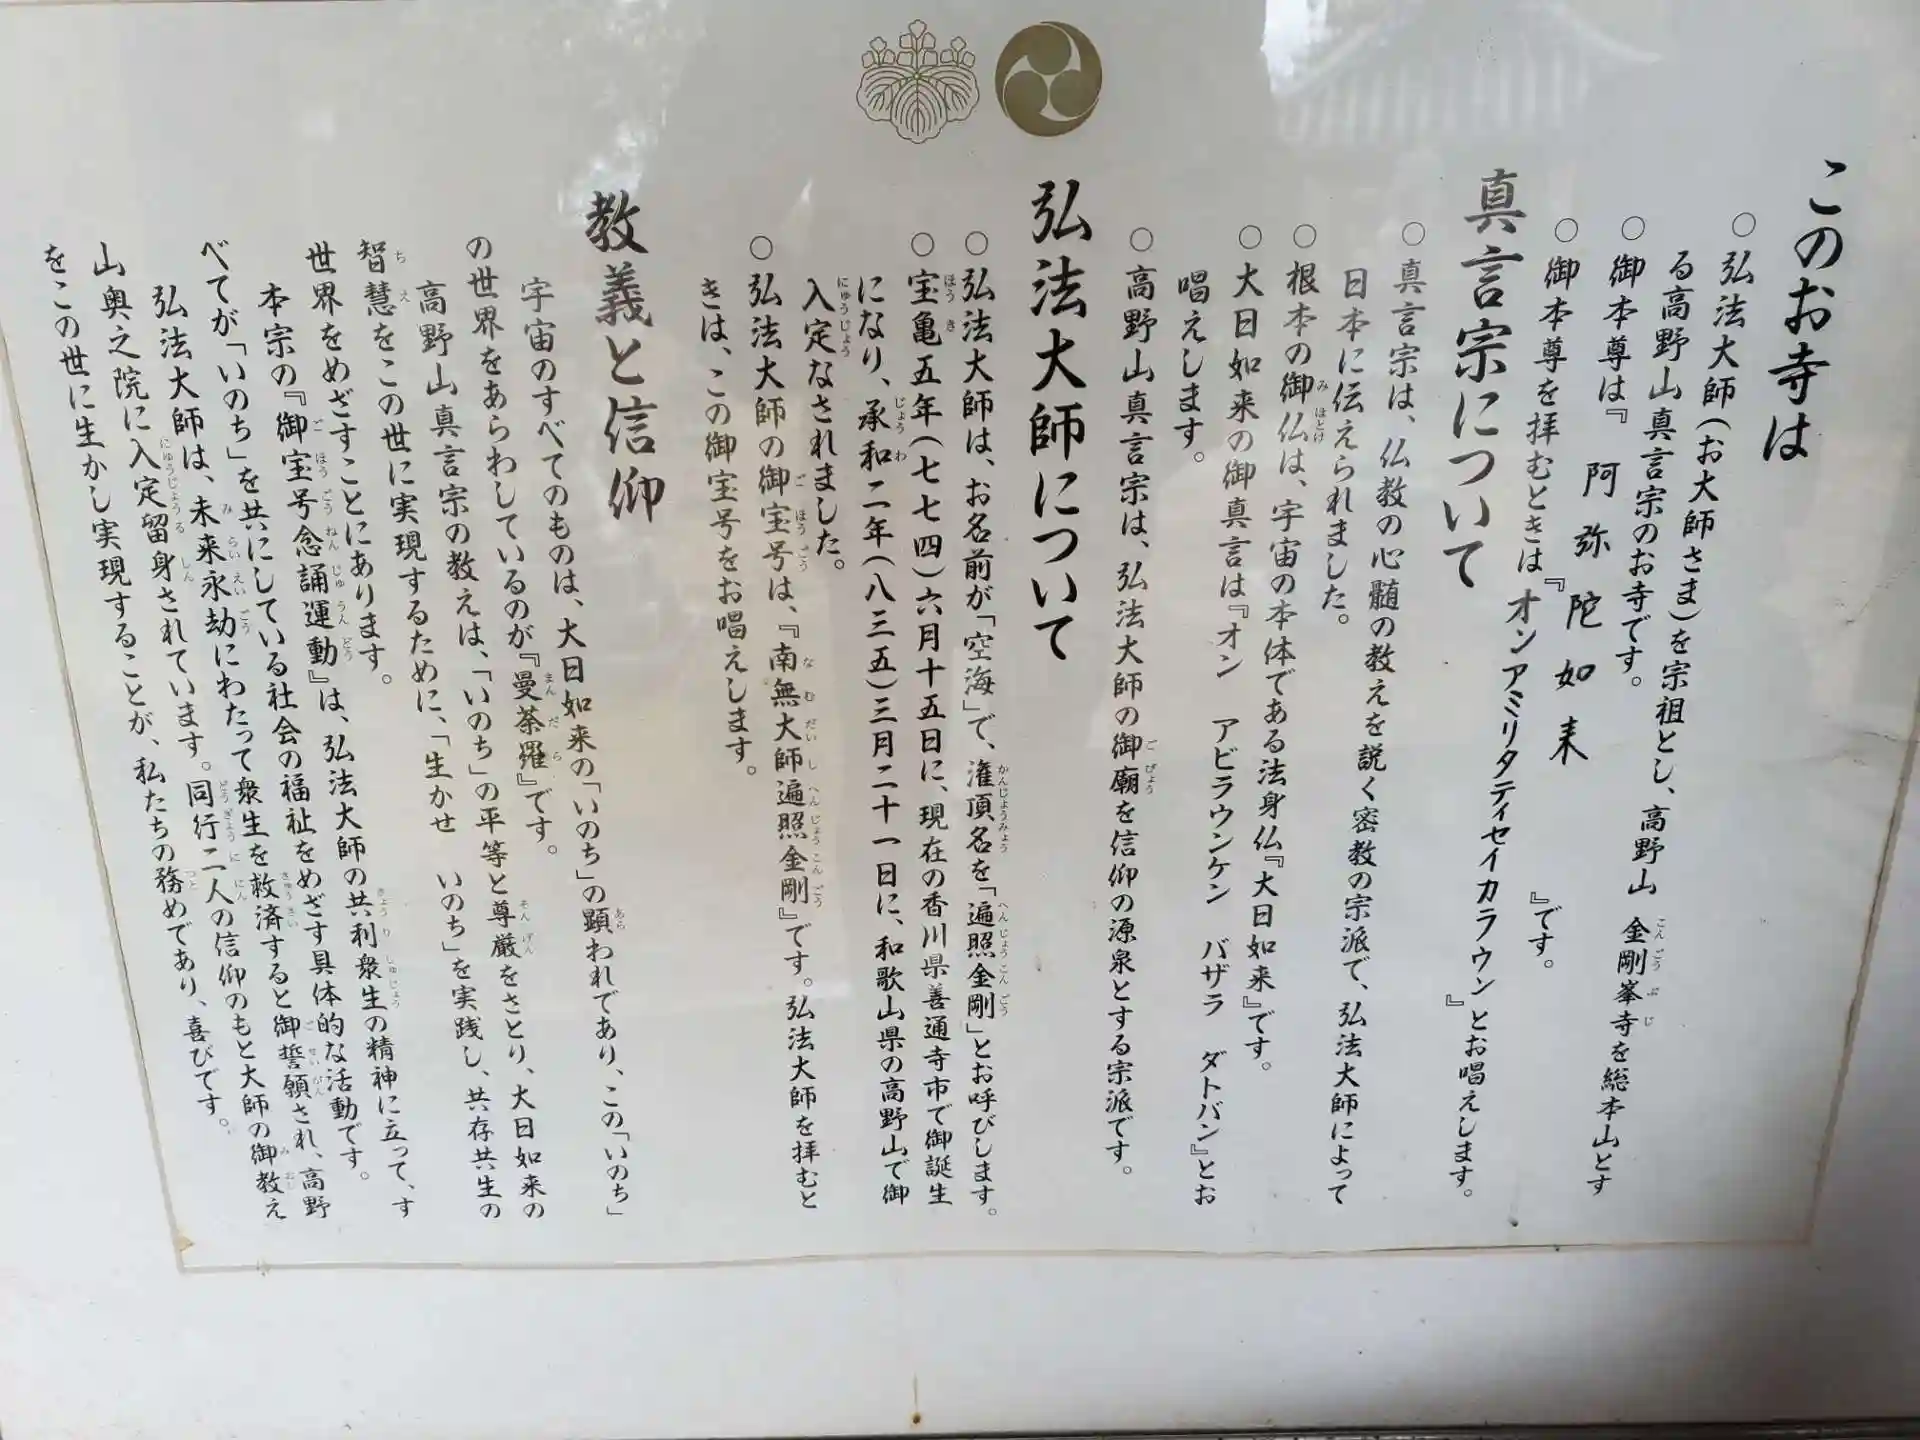 このお寺は
○弘法大師(お大師さま)を宗祖とし、高野山 金剛峯寺を総本山とす
る高野山真言宗のお寺です。
○御本尊は『 阿弥陀如来 』です。
○御本尊を拝むときは『オンアミリタテイセイカラウン』とお唱えします。
真言宗について
○真言宗は、仏教の心髄の教えを説く密教の宗派で、弘法大師によって
日本に伝えられました。
○根本の御仏は、宇宙の本体である法身仏『大日如来』です。
○大日如来の御真言は『オン アビラウンケン バザラ ダトバン』とお
唱えします。
○高野山真言宗は、弘法大師の御廟を信仰の源泉とする宗派です。
弘法大師について
○弘法大師は、お名前が「空海」で、灌頂名を「遍照金剛」とお呼びします。
○宝亀五年(七七四)六月十五日に、現在の香川県善通寺市で御誕生
になり、承和二年(八三五)三月二十一日に、和歌山県の高野山で御
入定なされました。
○弘法大師の御宝号は、『南無大師遍照金剛』です。弘法大師を拝むと
きは、この御宝号をお唱えします。
教義と信仰
宇宙のすべてのものは、大日如来の「いのち」の顕われであり、この「いのち」
の世界をあらわしているのが『曼荼羅』です。
高野山真言宗の教えは、「いのち」の平等と尊厳をさとり、大日如来の
智慧をこの世に実現するために、「生かせ いのち」を実践し、共存共生の
世界をめざすことにあります。
本宗の『御宝号念誦運動』は、弘法大師の共利衆生の精神に立って、す
べてが「いのち」を共にしている社会の福祉をめざす具体的な活動です。
弘法大師は、未来永劫にわたって衆生を救済すると御誓願され、高野
山奥之院に入定留身されています。同行二人の信仰のもと大師の御教え
をこの世に生かし実現することが、私たちの務めであり、喜びです。